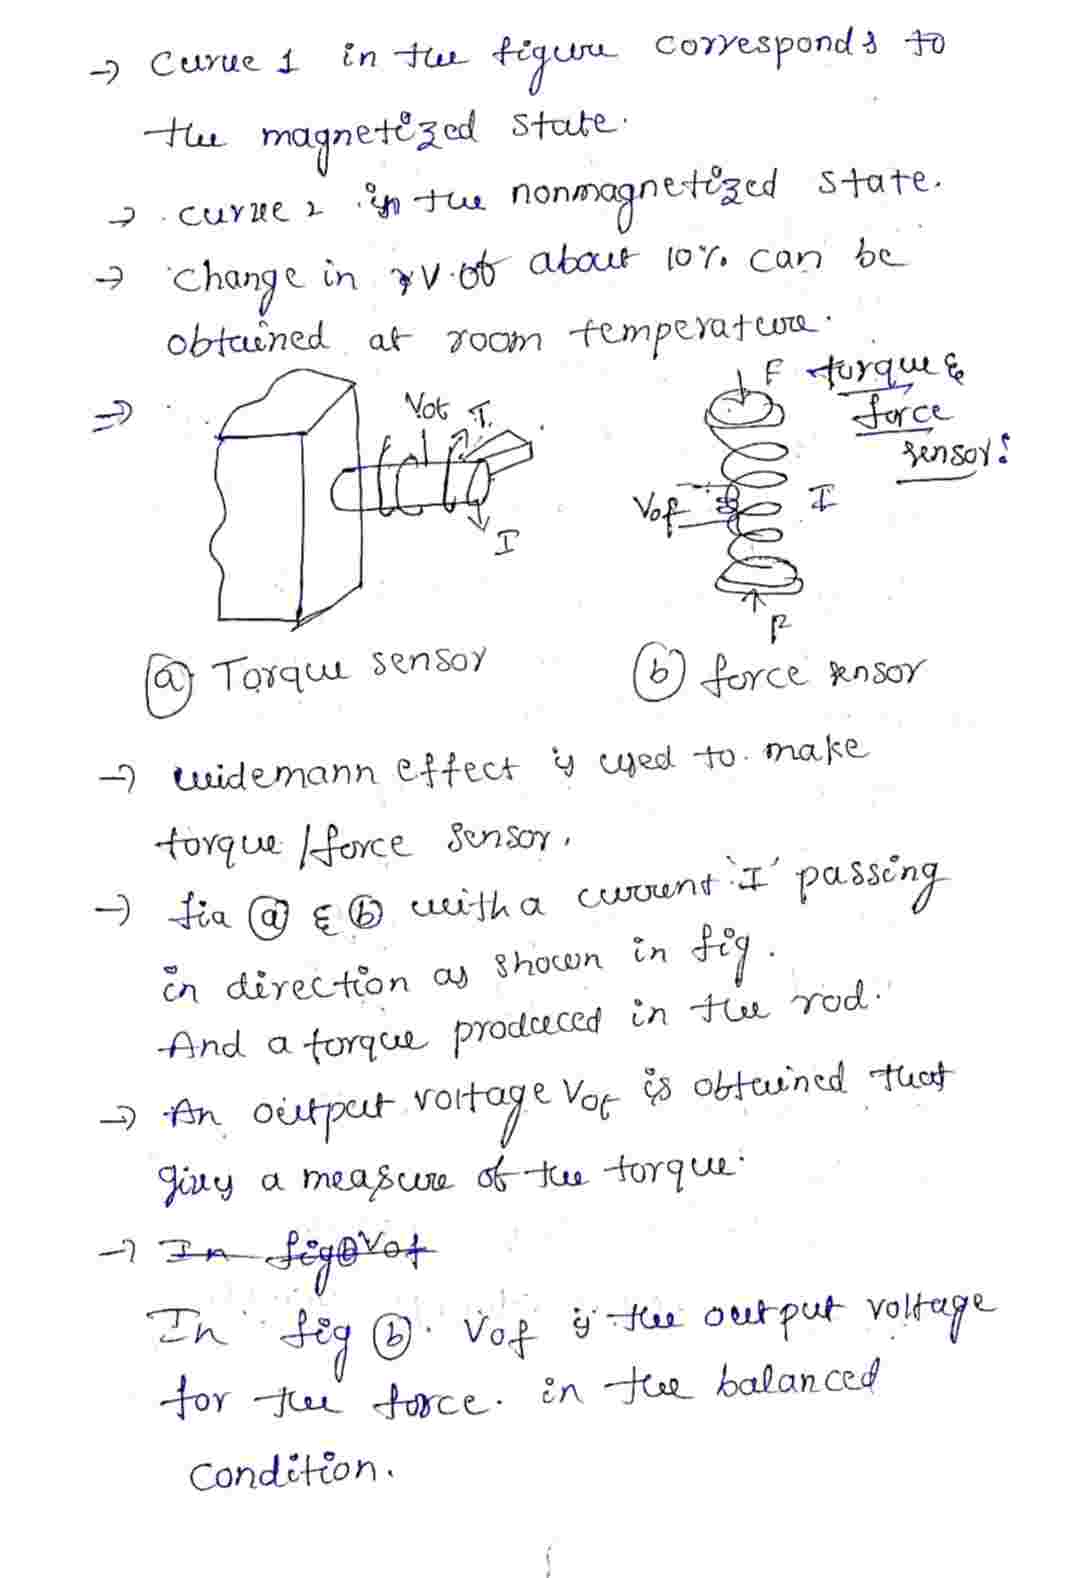 → Curve 1 in the figure corresponds to
the magnetized state.
→ curve 2 in the nonmagnetized state.
→ Change in V of about 10% can be
obtained at room temperature.
⇒ torque &
force
sensor:
Vot T
I
F
Vof I
F
(a) Torque sensor
(b) force sensor
→ widemann effect is used to make
torque / force sensor.
→ fia (a) & (b) with a current 'I' passing
in direction as shown in fig.
And a torque produced in the rod.
→ An output voltage Vot is obtained that
gives a measure of the torque.
→ In fig Vot
In fig (b). Vof is the output voltage
for the force. in the balanced
condition.